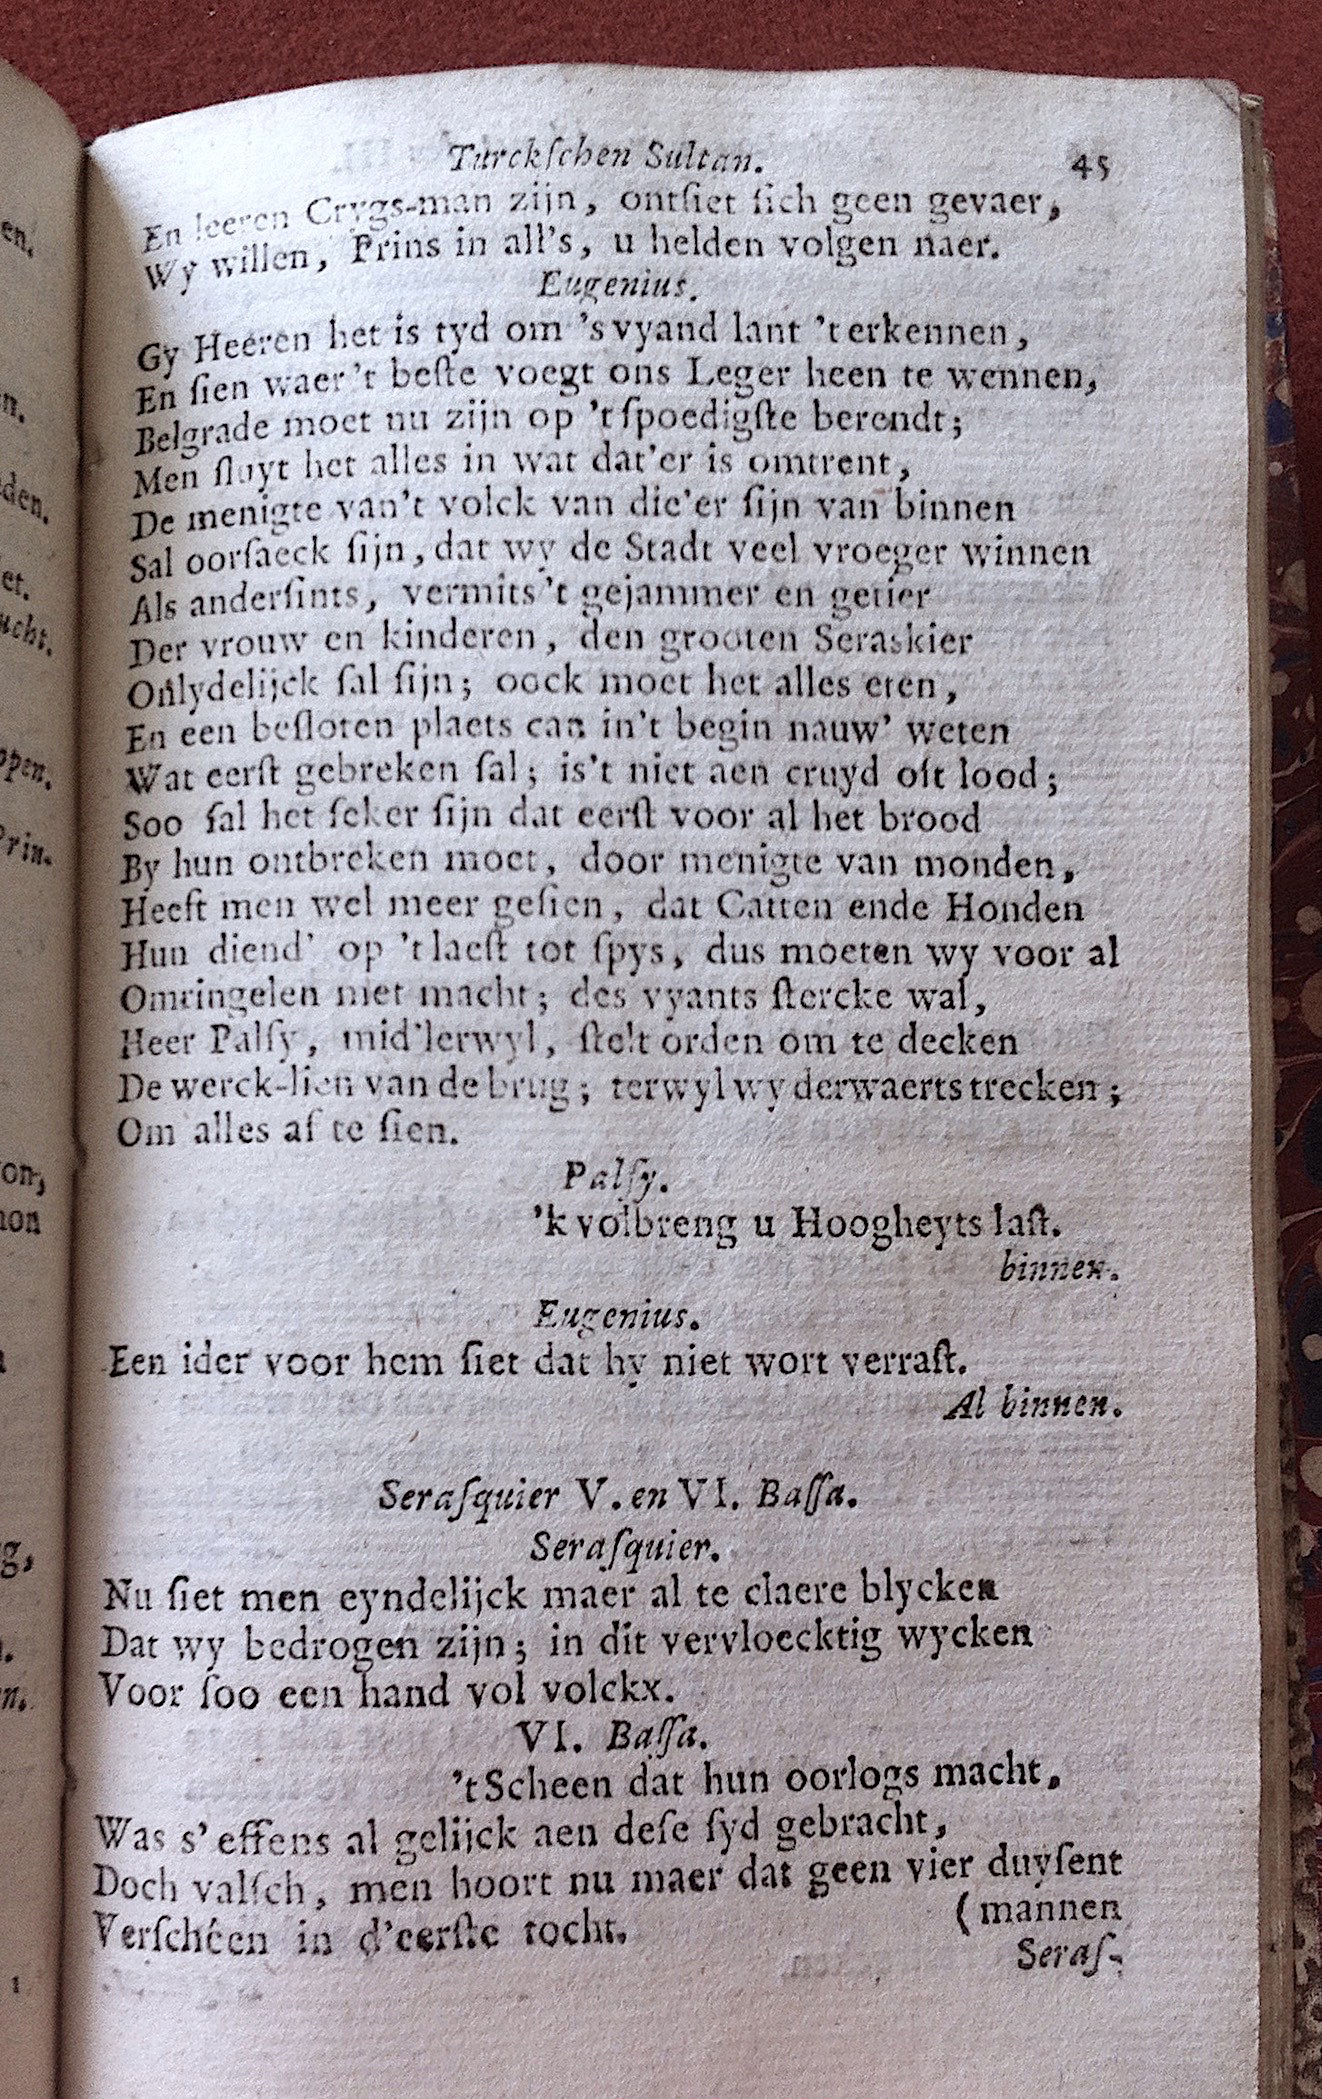 Turckſchen Sultan. 45
En leeren Crygs-man zijn, ontſiet ſich geen gevaer,
Wy willen, Prins in all's, u helden volgen naer.
Eugenius.
Gy Heeren het is tyd om 's vyand lant 't erkennen,
En ſien waer 't beſte voegt ons Leger heen te wennen,
Belgrade moet nu zijn op 't ſpoedigſte berendt;
Men ſluyt het alles in wat dat'er is omtrent,
De menigte van't volck van die'er ſijn van binnen
Sal oorſaeck ſijn, dat wy de Stadt veel vroeger winnen
Als anderſints, vermits 't gejammer en getier
Der vrouw en kinderen, den grooten Seraskier
Onlydelijck ſal ſijn; oock moet het alles eten,
En een beſloten plaets can in't begin nauw' weten
Wat eerſt gebreken ſal; is't niet aen cruyd oft lood;
Soo ſal het ſeker ſijn dat eerſt voor al het brood
By hun ontbreken moet, door menigte van monden,
Heeft men wel meer geſien, dat Catten ende Honden
Hun diend' op 't laeſt tot ſpys, dus moeten wy voor al
Omringelen met macht; des vyants ſtercke wal,
Heer Palſy, mid'lerwyl, ſtelt orden om te decken
De werck-lien van de brug; terwyl wy derwaerts trecken;
Om alles af te ſien.
Palſy.
'k volbreng u Hoogheyts laſt.
binnen.
Eugenius.
Een ider voor hem ſiet dat hy niet wort verraſt.
Al binnen.
Seraſquier V. en VI. Baſſa.
Seraſquier.
Nu ſiet men eyndelijck maer al te claere blycken
Dat wy bedrogen zijn; in dit vervloecktig wycken
Voor ſoo een hand vol volckx.
VI. Baſſa.
't Scheen dat hun oorlogs macht,
Was s' effens al gelijck aen deſe ſyd gebracht,
Doch valſch, men hoort nu maer dat geen vier duyſent
(mannen
Verſchéen in d'eerſte tocht.
Seraſ-